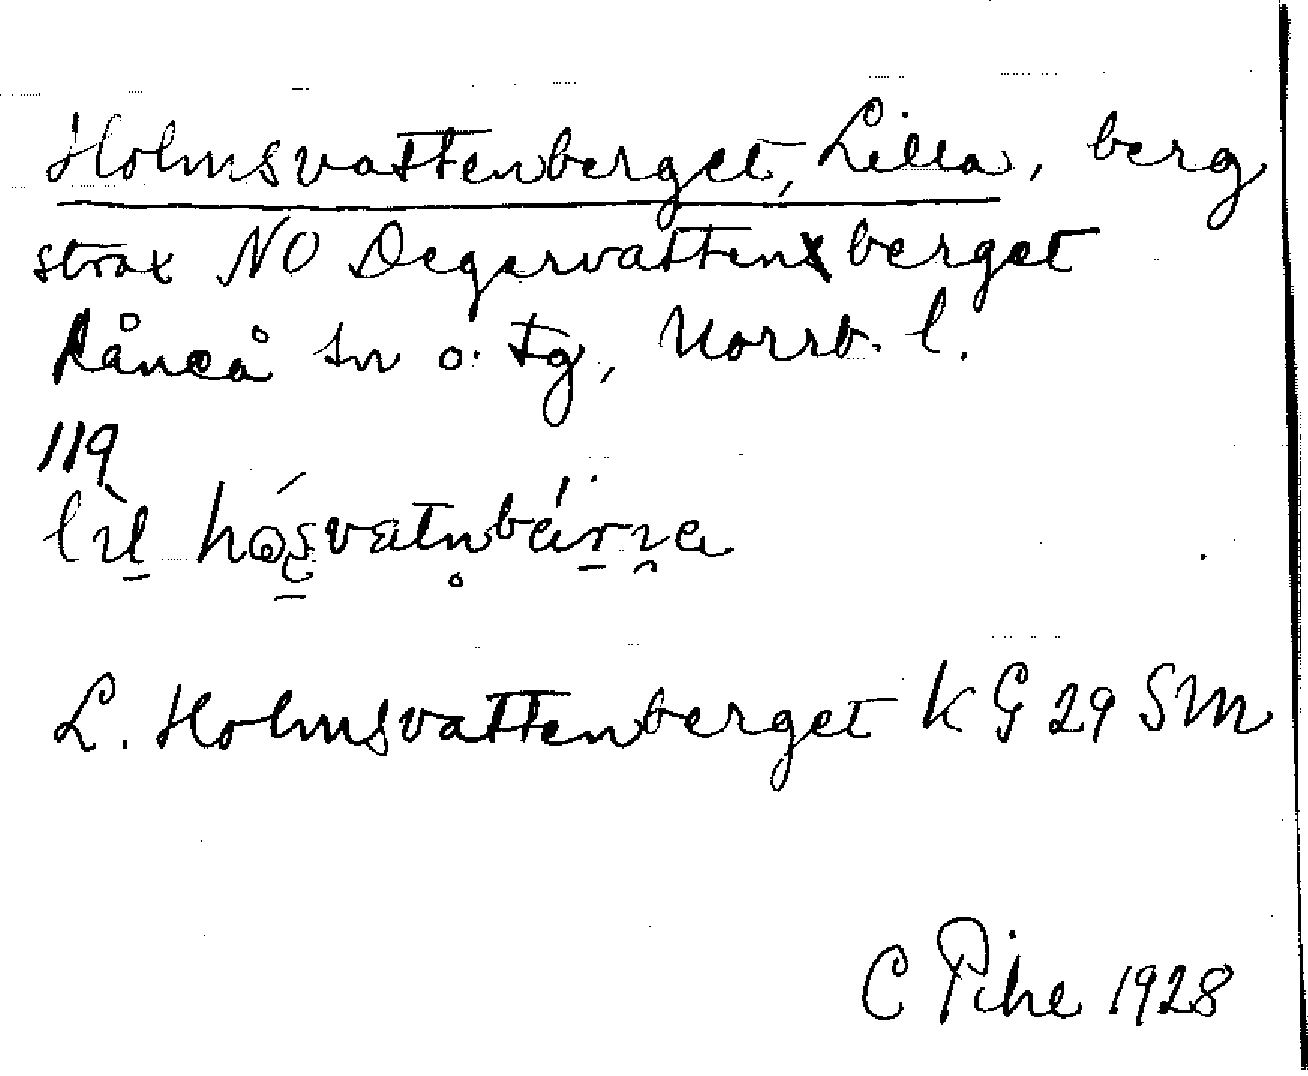 Holmsvattenberget, Lilla, berg
strax NO Degervattenberget
Råneå sn o. tg, Norrb. l.
119
L. Holmsvattenberget KG 29 SM
C Pihe 1928